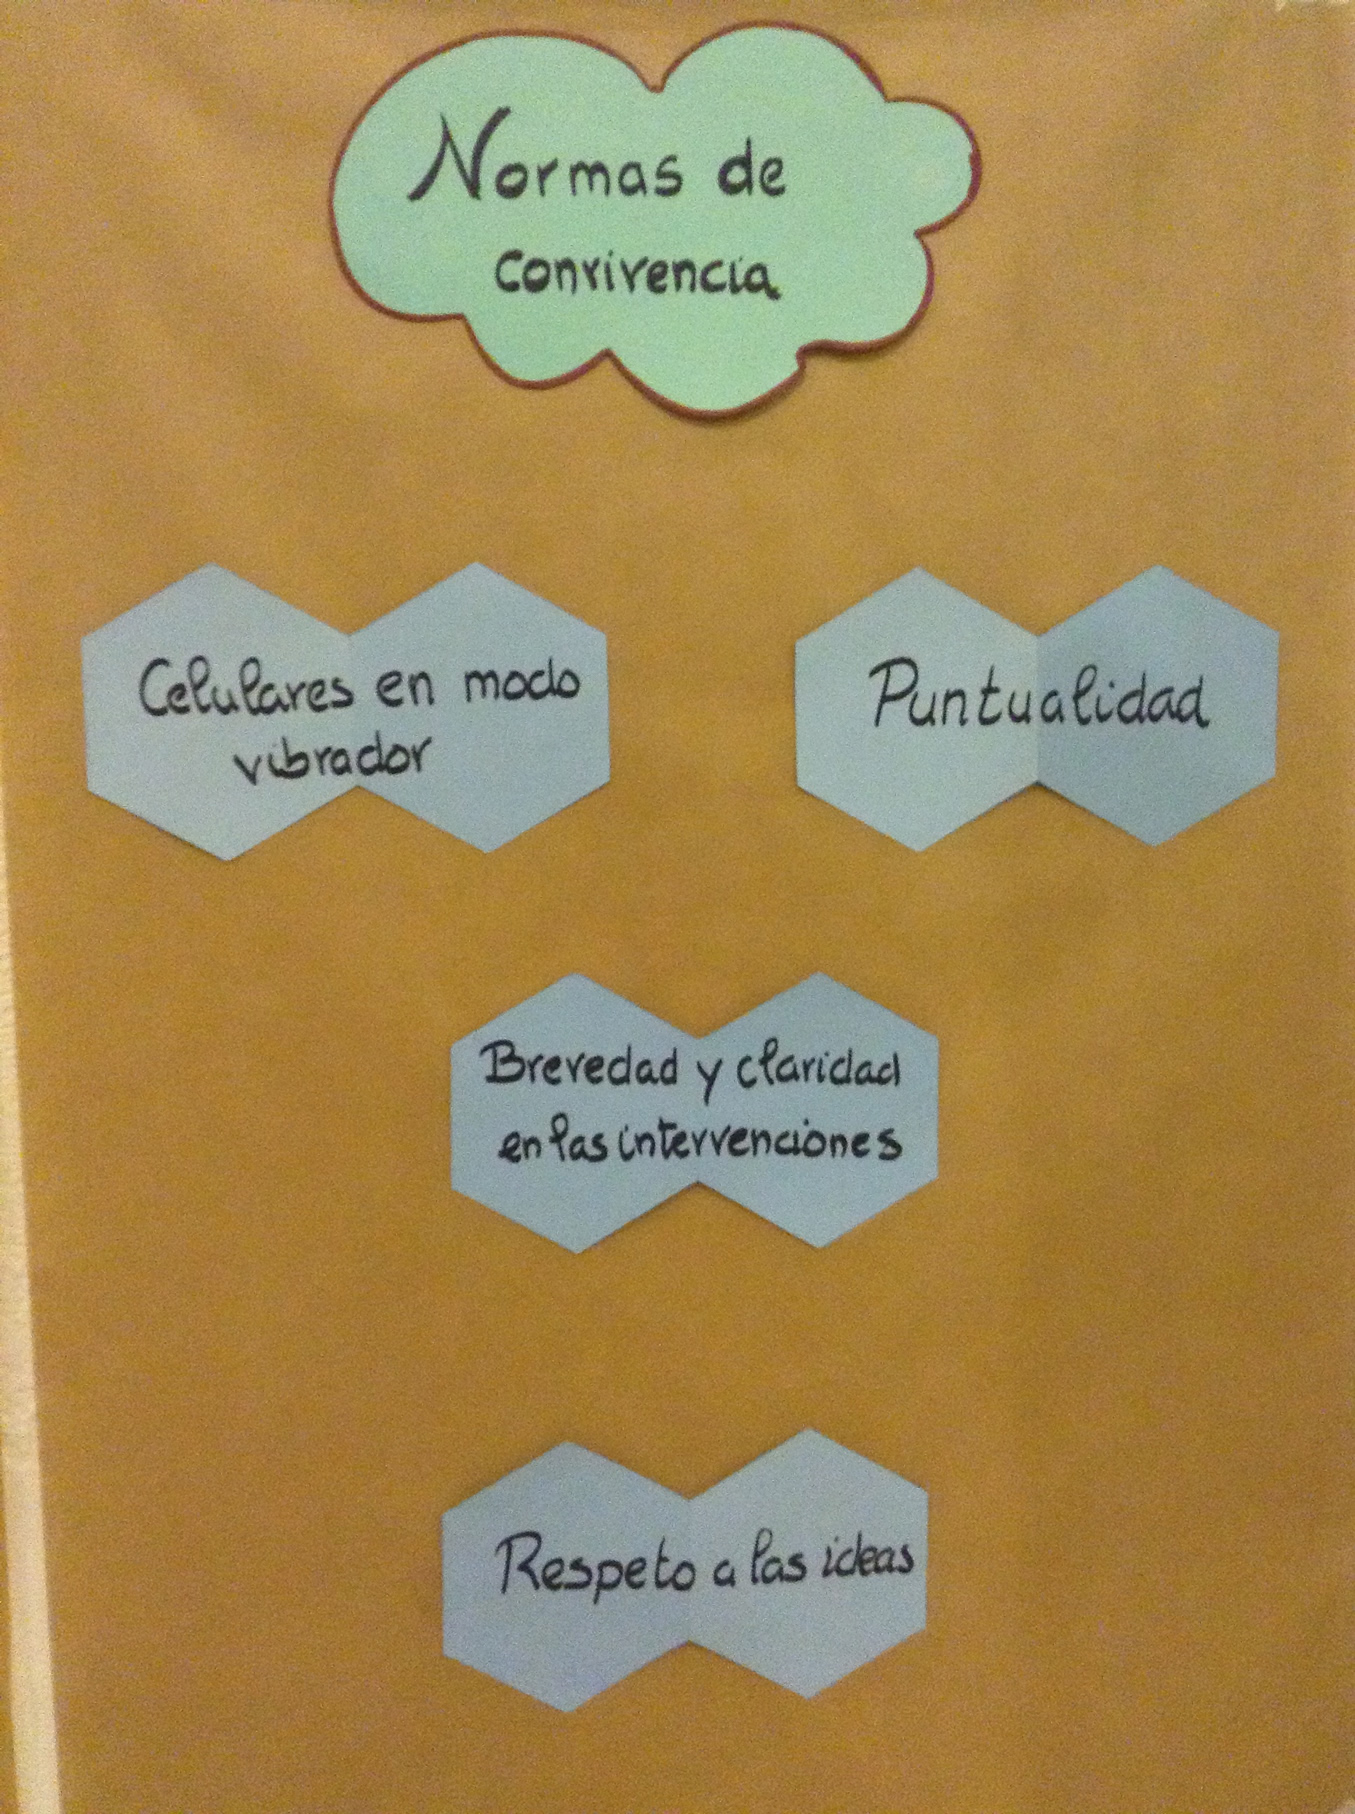 Normas de
convivencia
Celulares en modo
vibrador
Puntualidad
Brevedad y claridad
en las intervenciones
Respeto a las ideas